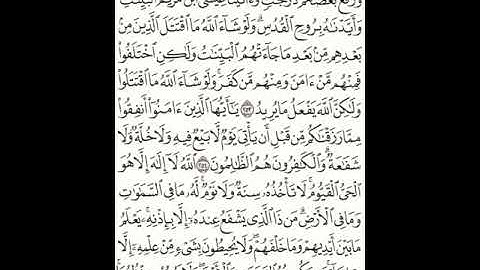 ورفع بعضهم درجت وءاتينا عيسى ابن مريم البينت
وَأَيَّدْنَٰهُ بِرُوحِ ٱلْقُدُسِ ۗ وَلَوْ شَآءَ ٱللَّهُ مَا ٱقْتَتَلَ ٱلَّذِينَ مِنۢ
بَعْدِهِم مِّنۢ بَعْدِ مَا جَآءَتْهُمُ ٱلْبَيِّنَٰتُ وَلَٰكِنِ ٱخْتَلَفُوا۟
فَمِنْهُم مَّنْ ءَامَنَ وَمِنْهُم مَّن كَفَرَ ۚ وَلَوْ شَآءَ ٱللَّهُ مَا ٱقْتَتَلُوا۟
وَلَٰكِنَّ ٱللَّهَ يَفْعَلُ مَا يُرِيدُ ﴿٢٥٣﴾ يَٰٓأَيُّهَا ٱلَّذِينَ ءَامَنُوٓا۟ أَنفِقُوا۟
مِمَّا رَزَقْنَٰكُم مِّن قَبْلِ أَن يَأْتِىَ يَوْمٌ لَّا بَيْعٌ فِيهِ وَلَا خُلَّةٌ وَلَا
شَفَٰعَةٌ ۗ وَٱلْكَٰفِرُونَ هُمُ ٱلظَّٰلِمُونَ ﴿٢٥٤﴾ ٱللَّهُ لَآ إِلَٰهَ إِلَّا هُوَ
ٱلْحَىُّ ٱلْقَيُّومُ ۚ لَا تَأْخُذُهُۥ سِنَةٌ وَلَا نَوْمٌ ۚ لَّهُۥ مَا فِى ٱلسَّمَٰوَٰتِ
وَمَا فِى ٱلْأَرْضِ ۗ مَن ذَا ٱلَّذِى يَشْفَعُ عِندَهُۥٓ إِلَّا بِإِذْنِهِۦ ۚ يَعْلَمُ
مَا بَيْنَ أَيْدِيهِمْ وَمَا خَلْفَهُمْ ۖ وَلَا يُحِيطُونَ بِشَىْءٍ مِّنْ عِلْمِهِۦٓ إِلَّا